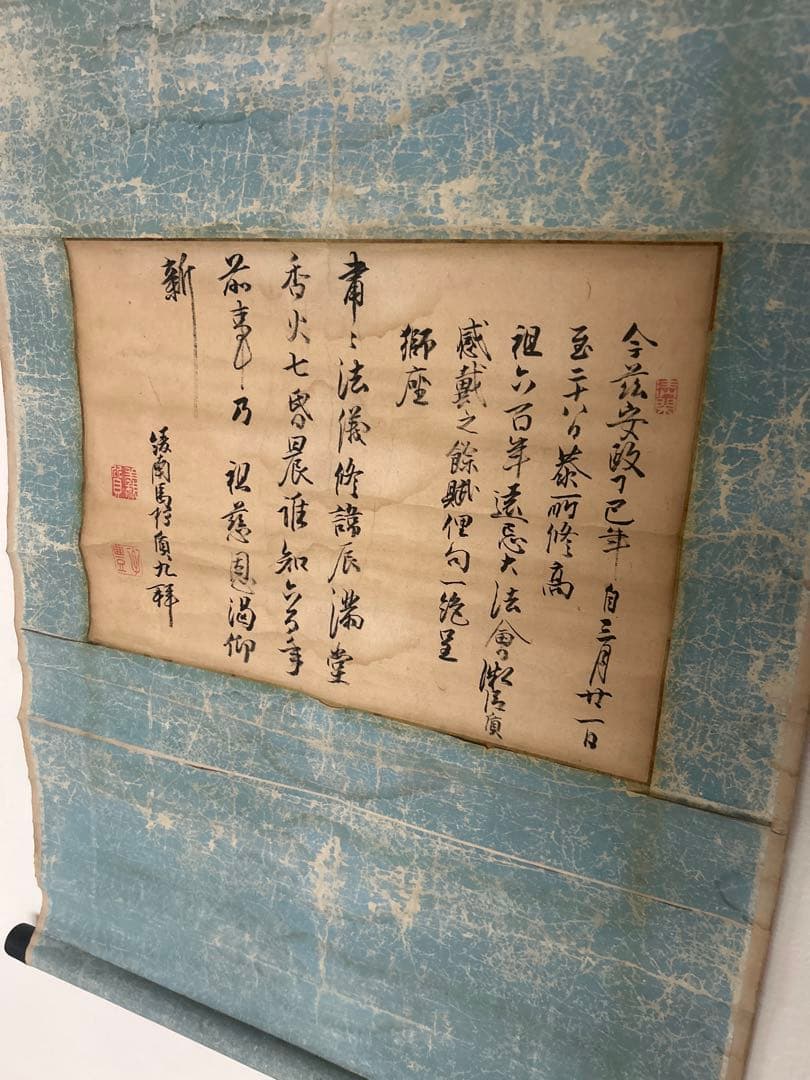 今茲安政丁巳年自三月廿一日
至二十八日恭所修高
祖六百年遠忌大法會
感戴之餘賦俚句一絶呈
獅座
肅〻法儀修諱辰滿堂
香火七昏晨誰知六百年
前事乃祖慈恩渴仰
新
九拜